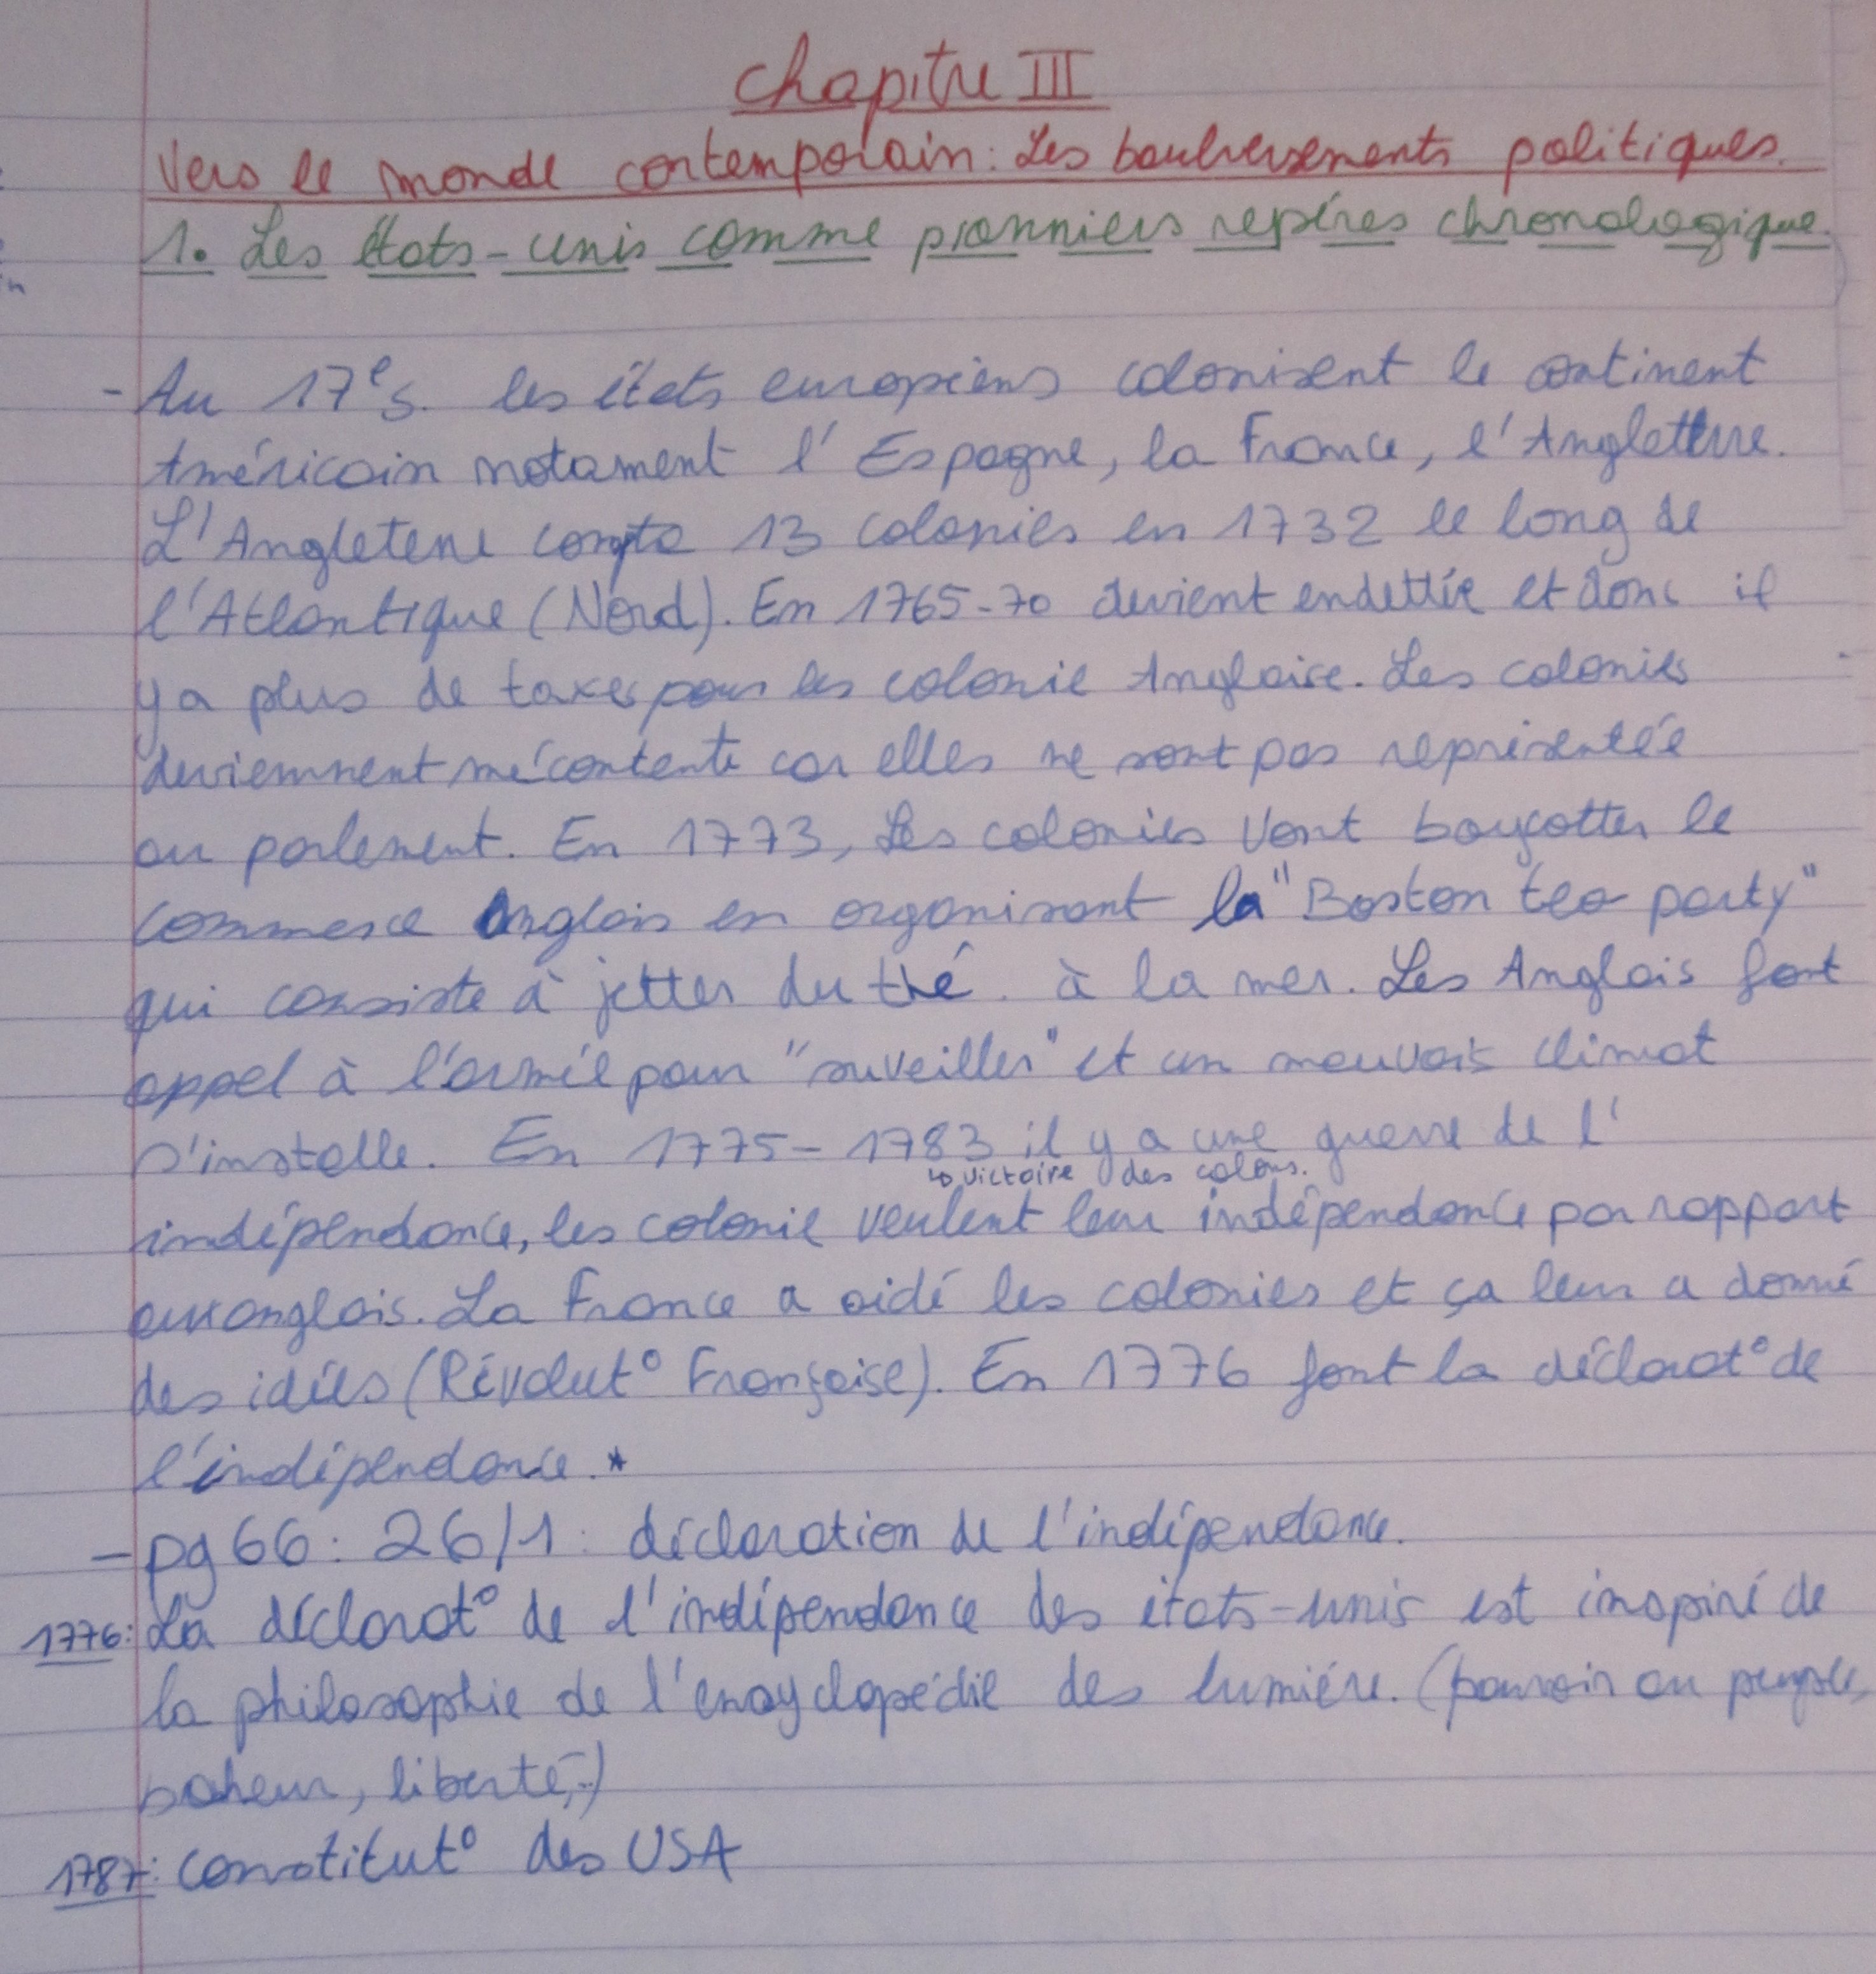 Chapitre III
Vers le monde contemporain: Les boulversements politiques.
1. Les États-unis comme pionniers repéres chronologique.
- Au 17e s. les états européens colonisent le continent
Américain notament l'Espagne, la France, l'Angleterre.
L'Angleterre compte 13 colonies en 1732 le long de
l'Atlantique (Nord). En 1765-70 devient endettée et donc il
y a plus de taxes pour les colonie Anglaise. Les colonies
deviennent mécontente car elles ne sont pas représentée
au parlement. En 1773, Les colonies vont boycotter le
commerce Anglais en organisant la "Boston tea party"
qui consiste à jetter du thé à la mer. Les Anglais font
appel à l'armée pour "surveiller" et un mauvais climat
s'installe. En 1775-1783 il y a une guerre de l'
↳ victoire des colons.
indépendance, les colonie veulent leur indépendance par rapport
aux anglais. La France a aidé les colonies et ça leur a donné
des idées (Révolut° Française). En 1776 font la déclarat° de
l'indépendance. *
- pg 66: 26/1: déclaration de l'indépendance.
1776: La déclarat° de l'indépendance des états-unis est inspiré de
la philosophie de l'encyclopédie des lumiére. (pouvoir au peuple,
boheur, liberté,..)
1787: constitut° des USA